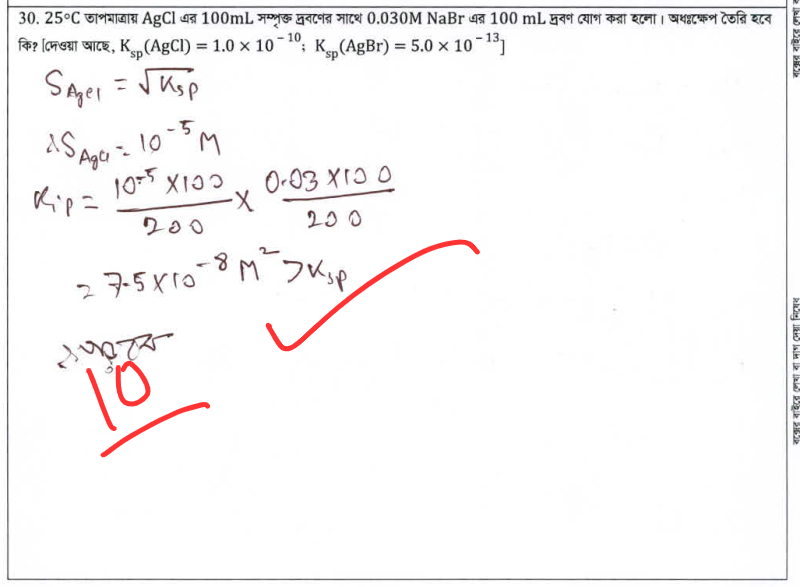 30. 25°C তাপমাত্রায় AgCl এর 100mL সম্পৃক্ত দ্রবণের সাথে 0.030M NaBr এর 100 mL দ্রবণ যোগ করা হলো। অধঃক্ষেপ তৈরি হবে
কি? [দেওয়া আছে, K_sp(AgCl) = 1.0 × 10^-10; K_sp(AgBr) = 5.0 × 10^-13]
S_AgCl = √K_sp
∴ S_AgCl = 10^-5 M
K_ip = (10^-5 × 100)/200 × (0.03 × 100)/200
= 7.5 × 10^-8 M^2 > K_sp
10
বক্সের বাইরে লেখা বা দাগ দেয়া নিষেধ